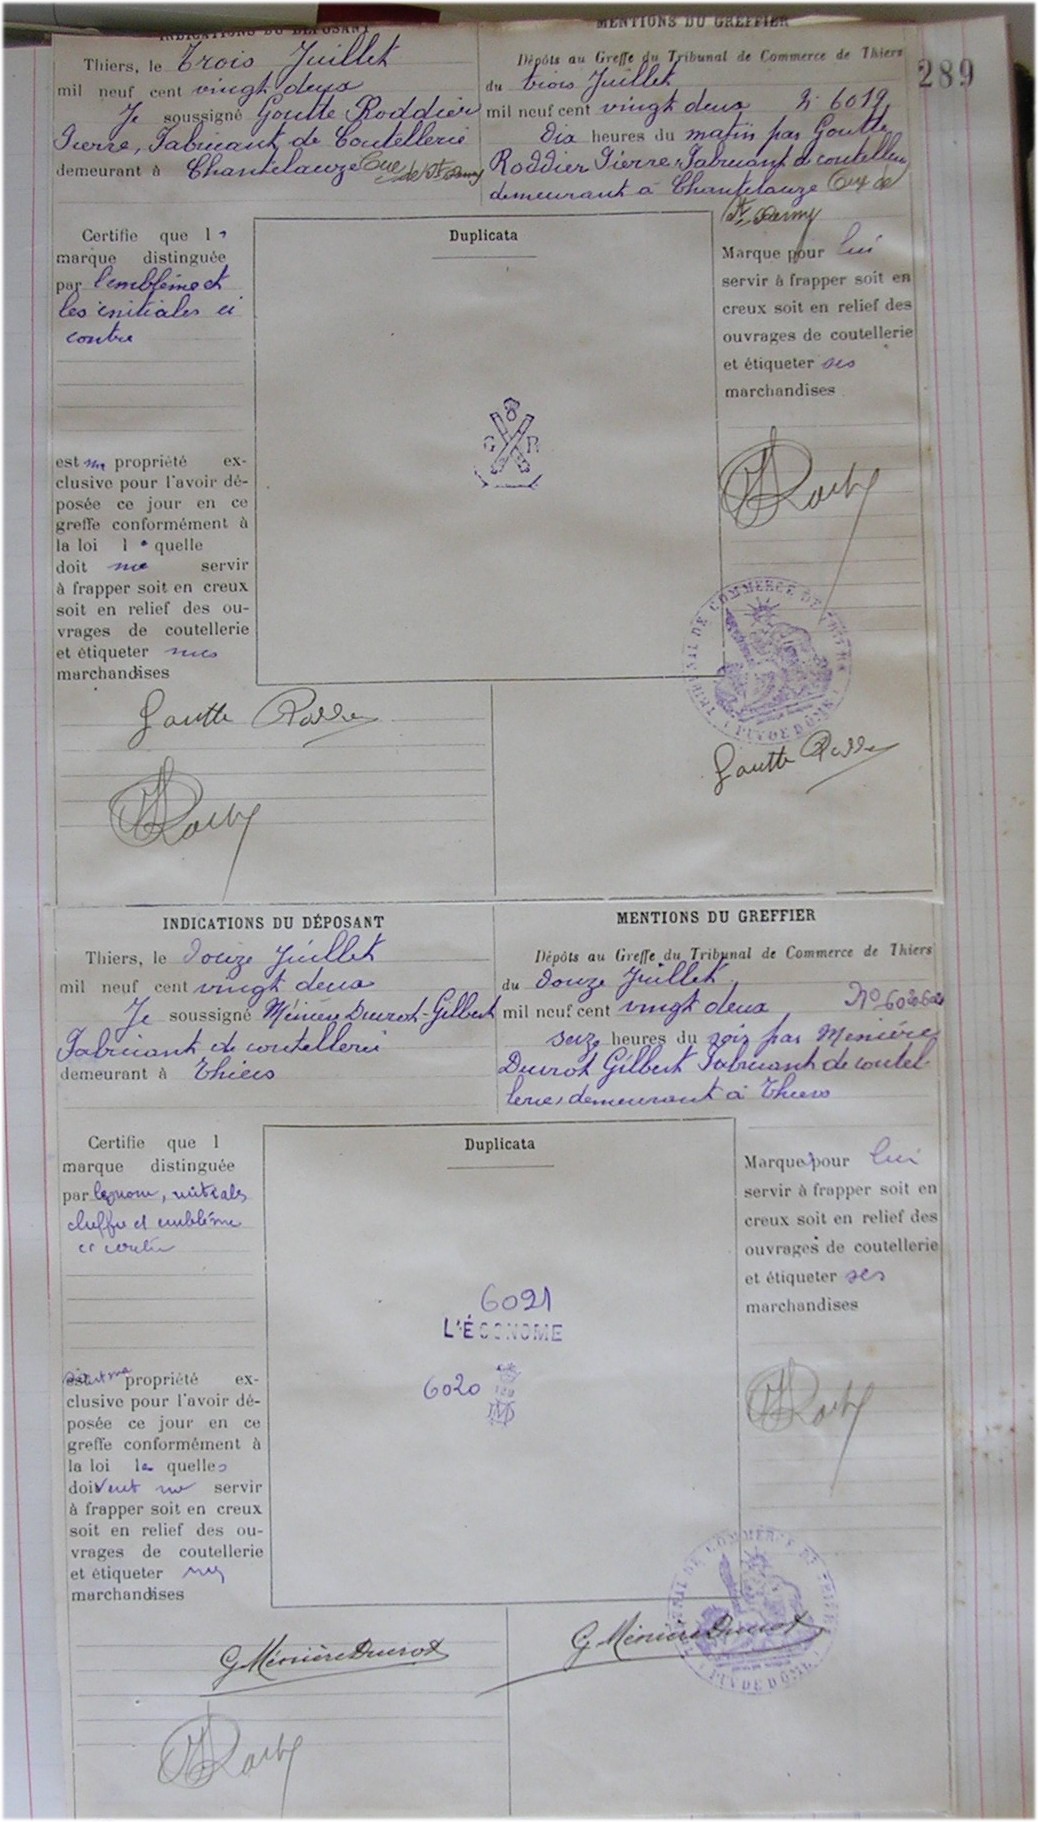 INDICATIONS DU DÉPOSANT
Thiers, le Trois Juillet
mil neuf cent vingt deux
Je soussigné Goutte Roddier
Pierre, Fabricant de Coutellerie
demeurant à Chantelauze Cne de St Remy
MENTIONS DU GREFFIER
Dépôts au Greffe du Tribunal de Commerce de Thiers
du trois Juillet
mil neuf cent vingt deux N° 6019
Dix heures du matin par Goutte
Roddier Pierre, Fabricant de coutellerie
demeurant à Chantelauze Cne de
St Remy
289
Certifie que l
marque distinguée
par l'emblème et
les initiales ci
contre
est ma propriété ex-
clusive pour l'avoir dé-
posée ce jour en ce
greffe conformément à
la loi l quelle
doit me servir
à frapper soit en creux
soit en relief des ou-
vrages de coutellerie
et étiqueter mes
marchandises
Duplicata
G R
Marque pour lui
servir à frapper soit en
creux soit en relief des
ouvrages de coutellerie
et étiqueter ses
marchandises
TRIBUNAL DE COMMERCE DE THIERS
(PUY DE DÔME)
Goutte
Goutte
INDICATIONS DU DÉPOSANT
Thiers, le Douze Juillet
mil neuf cent vingt deux
Je soussigné Ménière Ducrot-Gilbert
Fabricant de coutellerie
demeurant à Thiers
MENTIONS DU GREFFIER
Dépôts au Greffe du Tribunal de Commerce de Thiers
du Douze Juillet
mil neuf cent vingt deux N°
seize heures du soir par Menière
Ducrot Gilbert Fabricant de coutel-
lerie, demeurant à Thiers
Certifie que l
marque distinguée
par le nom, initiales
chiffre et emblème
ci contre
propriété ex-
clusive pour l'avoir dé-
posée ce jour en ce
greffe conformément à
la loi les quelles
doivent me servir
à frapper soit en creux
soit en relief des ou-
vrages de coutellerie
et étiqueter mes
marchandises
Duplicata
6021
L'ÉCONOME
6020
Marque pour lui
servir à frapper soit en
creux soit en relief des
ouvrages de coutellerie
et étiqueter ses
marchandises
TRIBUNAL DE COMMERCE DE THIERS
(PUY DE DÔME)
G Ménière Ducrot
G Ménière Ducrot